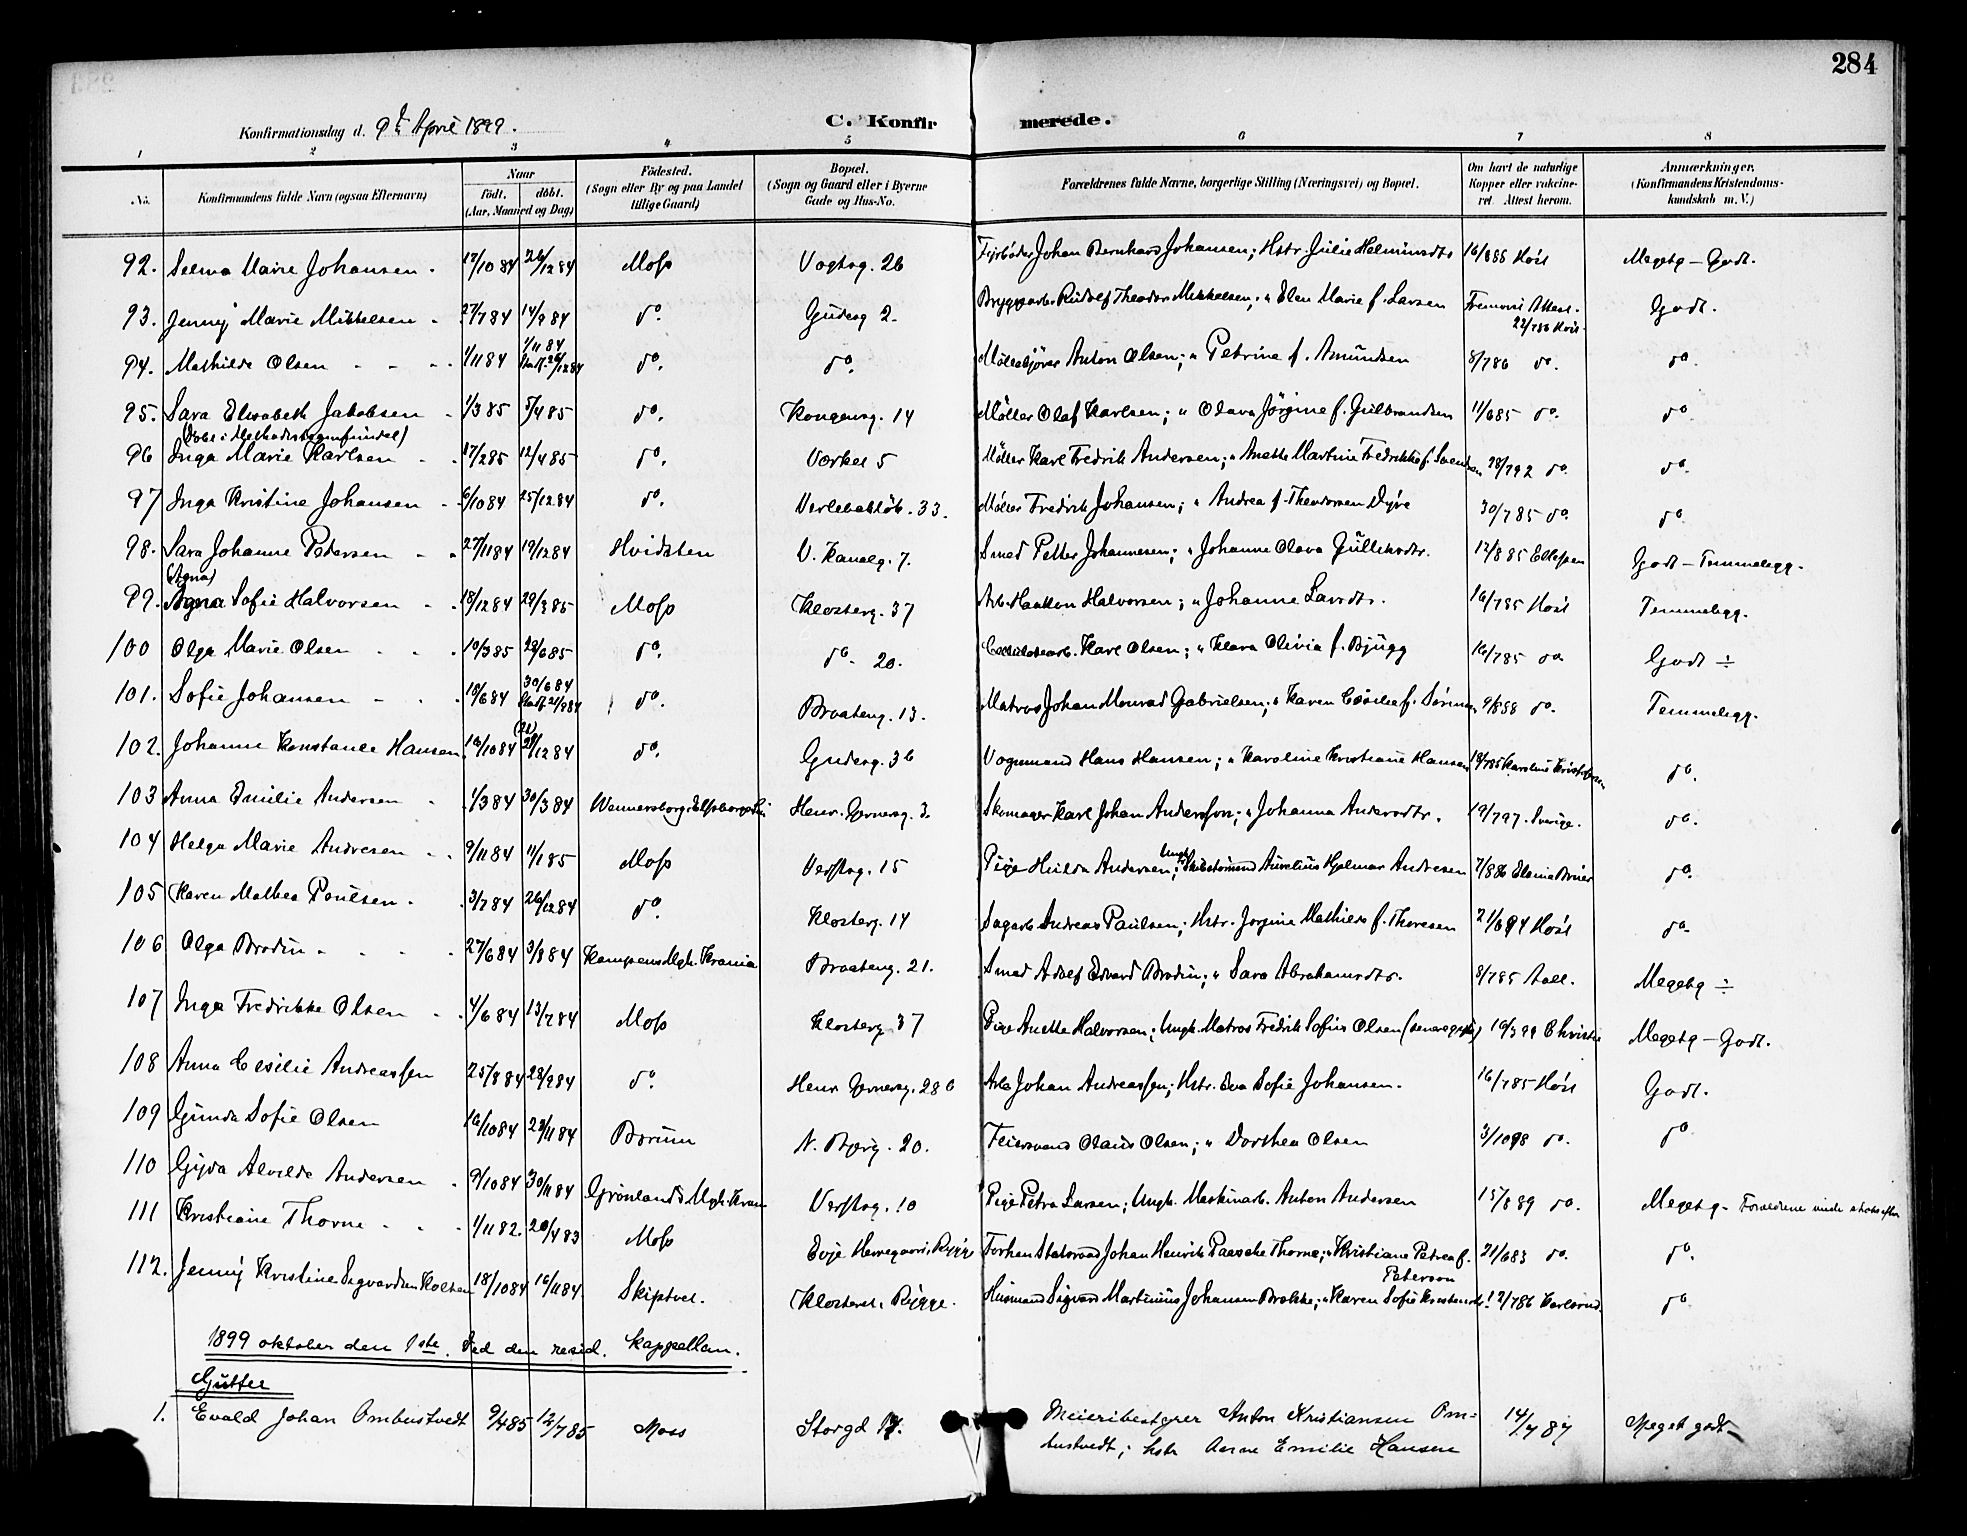 284
Konfirmationsdag d. 9de April 1899.
C. Konfirmerede.
1 2 3 4 5 6 7 8
No. Konfirmandens fulde Navn (ogsaa Efternavn) Naar født. døbt. (Aar, Maaned og Dag) Fødested. (Sogn eller By og paa Landet tillige Gaard) Bopæl. (Sogn og Gaard eller i Byerne Gade og Hus-No. Forældrenes fulde Navne, borgerlige Stilling (Næringsvei) og Bopæl. Om havt de naturlige Kopper eller vakcineret. Attest herom. Anmærkninger. (Konfirmandens Kristendomskundskab m. V.)
92. Selma Marie Johansen 17/10 84 26/12 84 Moss Vogtsg. 26 Fyrbøder Johan Bernhard Johansen; Hstr. Julie Helmine 16/8 85 Meget g - Godt.
93. Jenny Marie Mikkelsen 27/7 84 14/9 84 do. Gudesg 2. Bryggearb. Rudolf Theodor Mikkelsen; " Elen Marie f. Larsen 22/7 86 Godt.
94. Mathilde Olsen 1/11 84 1/11 84 Stadf. 26/12 84 do. do. Anton Olsen; " Petrine f. Amundsen 8/7 86 do. do.
95. Sara Elisabeth Jakobsen 1/3 85 5/4 85 do. Kongensg. 14 Møller Olaf Karlsen; " Olava Jørgine f. Gulbrandsen 11/6 85 do. do.
96 Inga Marie Karlsen 17/2 85 12/4 85 do. Værket 5 Møller Karl Fredrik Andersen; " Anette Martine Fredrikke f. Svendsen 28/7 92 do. do.
97 Inga Kristine Johansen 6/10 84 25/12 84 do. Verlebakløk. 33. Møller Fredrik Johansen; " Andrea f. Theodorsen Dyre 30/7 85 do. do.
98. Sara Johanne Pedersen 27/11 84 19/12 84 Hvidsten V. Kanalg. 7. Smed Petter Johannesen; " Johanne Olava Gulliksdtr. 12/8 85 Ellefsen Godt - Temmeligg.
(Agna)
99. Agna Sofie Halvorsen 18/12 84 29/3 85 Moss Klosterg. 37 Arb. Haakon Halvorsen; " Johanne Larsdtr. 16/7 85 Temmeligg.
100 Olga Marie Olsen 10/3 85 28/6 85 do. do. 20. Cellulosearb. Karl Olsen; " Klara Olivia f. Bjugg 16/7 85 do Godt ÷
101. Sofie Johansen 18/6 84 30/6 84 Stadf. 21/9 84 do. Braateng. 13. Matros Johan Monrad Gabrielsen; " Karen Cæsilie f. 9/8 88 do. Temmeligg.
102. Johanne Konstance Hansen 18/10 84 28/12 84 do. Gudesg. 36 Vognmand Hans Hansen; " Karoline Kristiane Hansen 18/7 85 Karoline Kristofersen do.
103 Anna Emilie Andersen 1/3 84 30/3 84 Wennersborg, Elfsborgs Henr. Gernersg. 3. Skomager Karl Johan Andersson; " Johanna Andersdtr. 19/7 97. Sverige. do.
104 Helga Marie Andresen 9/11 84 11/1 85 Moss Verftsg. 15 Pige Hulda Andersen; Ungk. Skibstømmd Aurelius Hjalmar Andresen 7/8 86 do.
105 Karen Mathea Poulsen 3/7 84 26/12 84 do. Klosterg. 14 Sagarb. Andreas Paulsen; Hstr. Jorgine Mathilde f. Thoresen 21/6 94 do.
106 Olga Brodin 27/6 84 3/8 84 Kampens Mgh. Krania Braateng. 21. Smed Adolf Edvard Brodin; " Sara Abrahamsdtr. 8/7 85 Aall. Meget g ÷
107 Inga Fredrikke Olsen 4/6 84 13/7 84 Moss Klosterg 37 Pige Anette Halvorsen; Ungk. Matros Fredrik Sofius Olsen (senere gifte) 10/3 99 Christie Meget g - Godt.
108 Anna Cesilie Andreassen 25/8 84 28/9 84 do. Henr Gernersg. 28 b Arb Johan Andreassen; Hstr. Eva Sofie Johansen. 16/7 85 Godt.
109 Gunda Sofie Olsen 16/10 84 23/11 84 Bærum N. Bjerg. 20. Feiersvend Olaus Olsen; " Dorthea Olsen 3/10 98 do. do
110 Gyda Alvilde Andersen 9/10 84 30/11 84 Grønlands Mgh. Kran Verftsg. 10 Pige Petra Larsen; Ungk. Maskinarb. Anton Andersen 15/8 89 do. Meget g - Forældrene
111 Kristiane Thorne 1/11 82. 20/4 83 Moss Evje Herregaard i Rygge Forhen Statsraad Johan Henrik Paasche Thorne; " Kristiane Petrea f. Peterson 21/6 83 do. do.
112. Jenny Kristine Sigvardsen Holsen 18/10 84 16/11 84 Skiptvet. Klosteret i Rygge. Husmand Sigvard Martinius Johansen Brekke; " Karen Sofie Kristensdtr 12/7 86 do
1899 oktober den 1ste. Ved den resid. kappellan.
Gutter
1. Evald Johan Ombustvedt 9/4 85 12/7 85 Moss Storgd 17. Meieribestyrer Anton Kristiansen Ombustvedt; hstr Anne Emilie Hansen 14/7 87 Meget godt